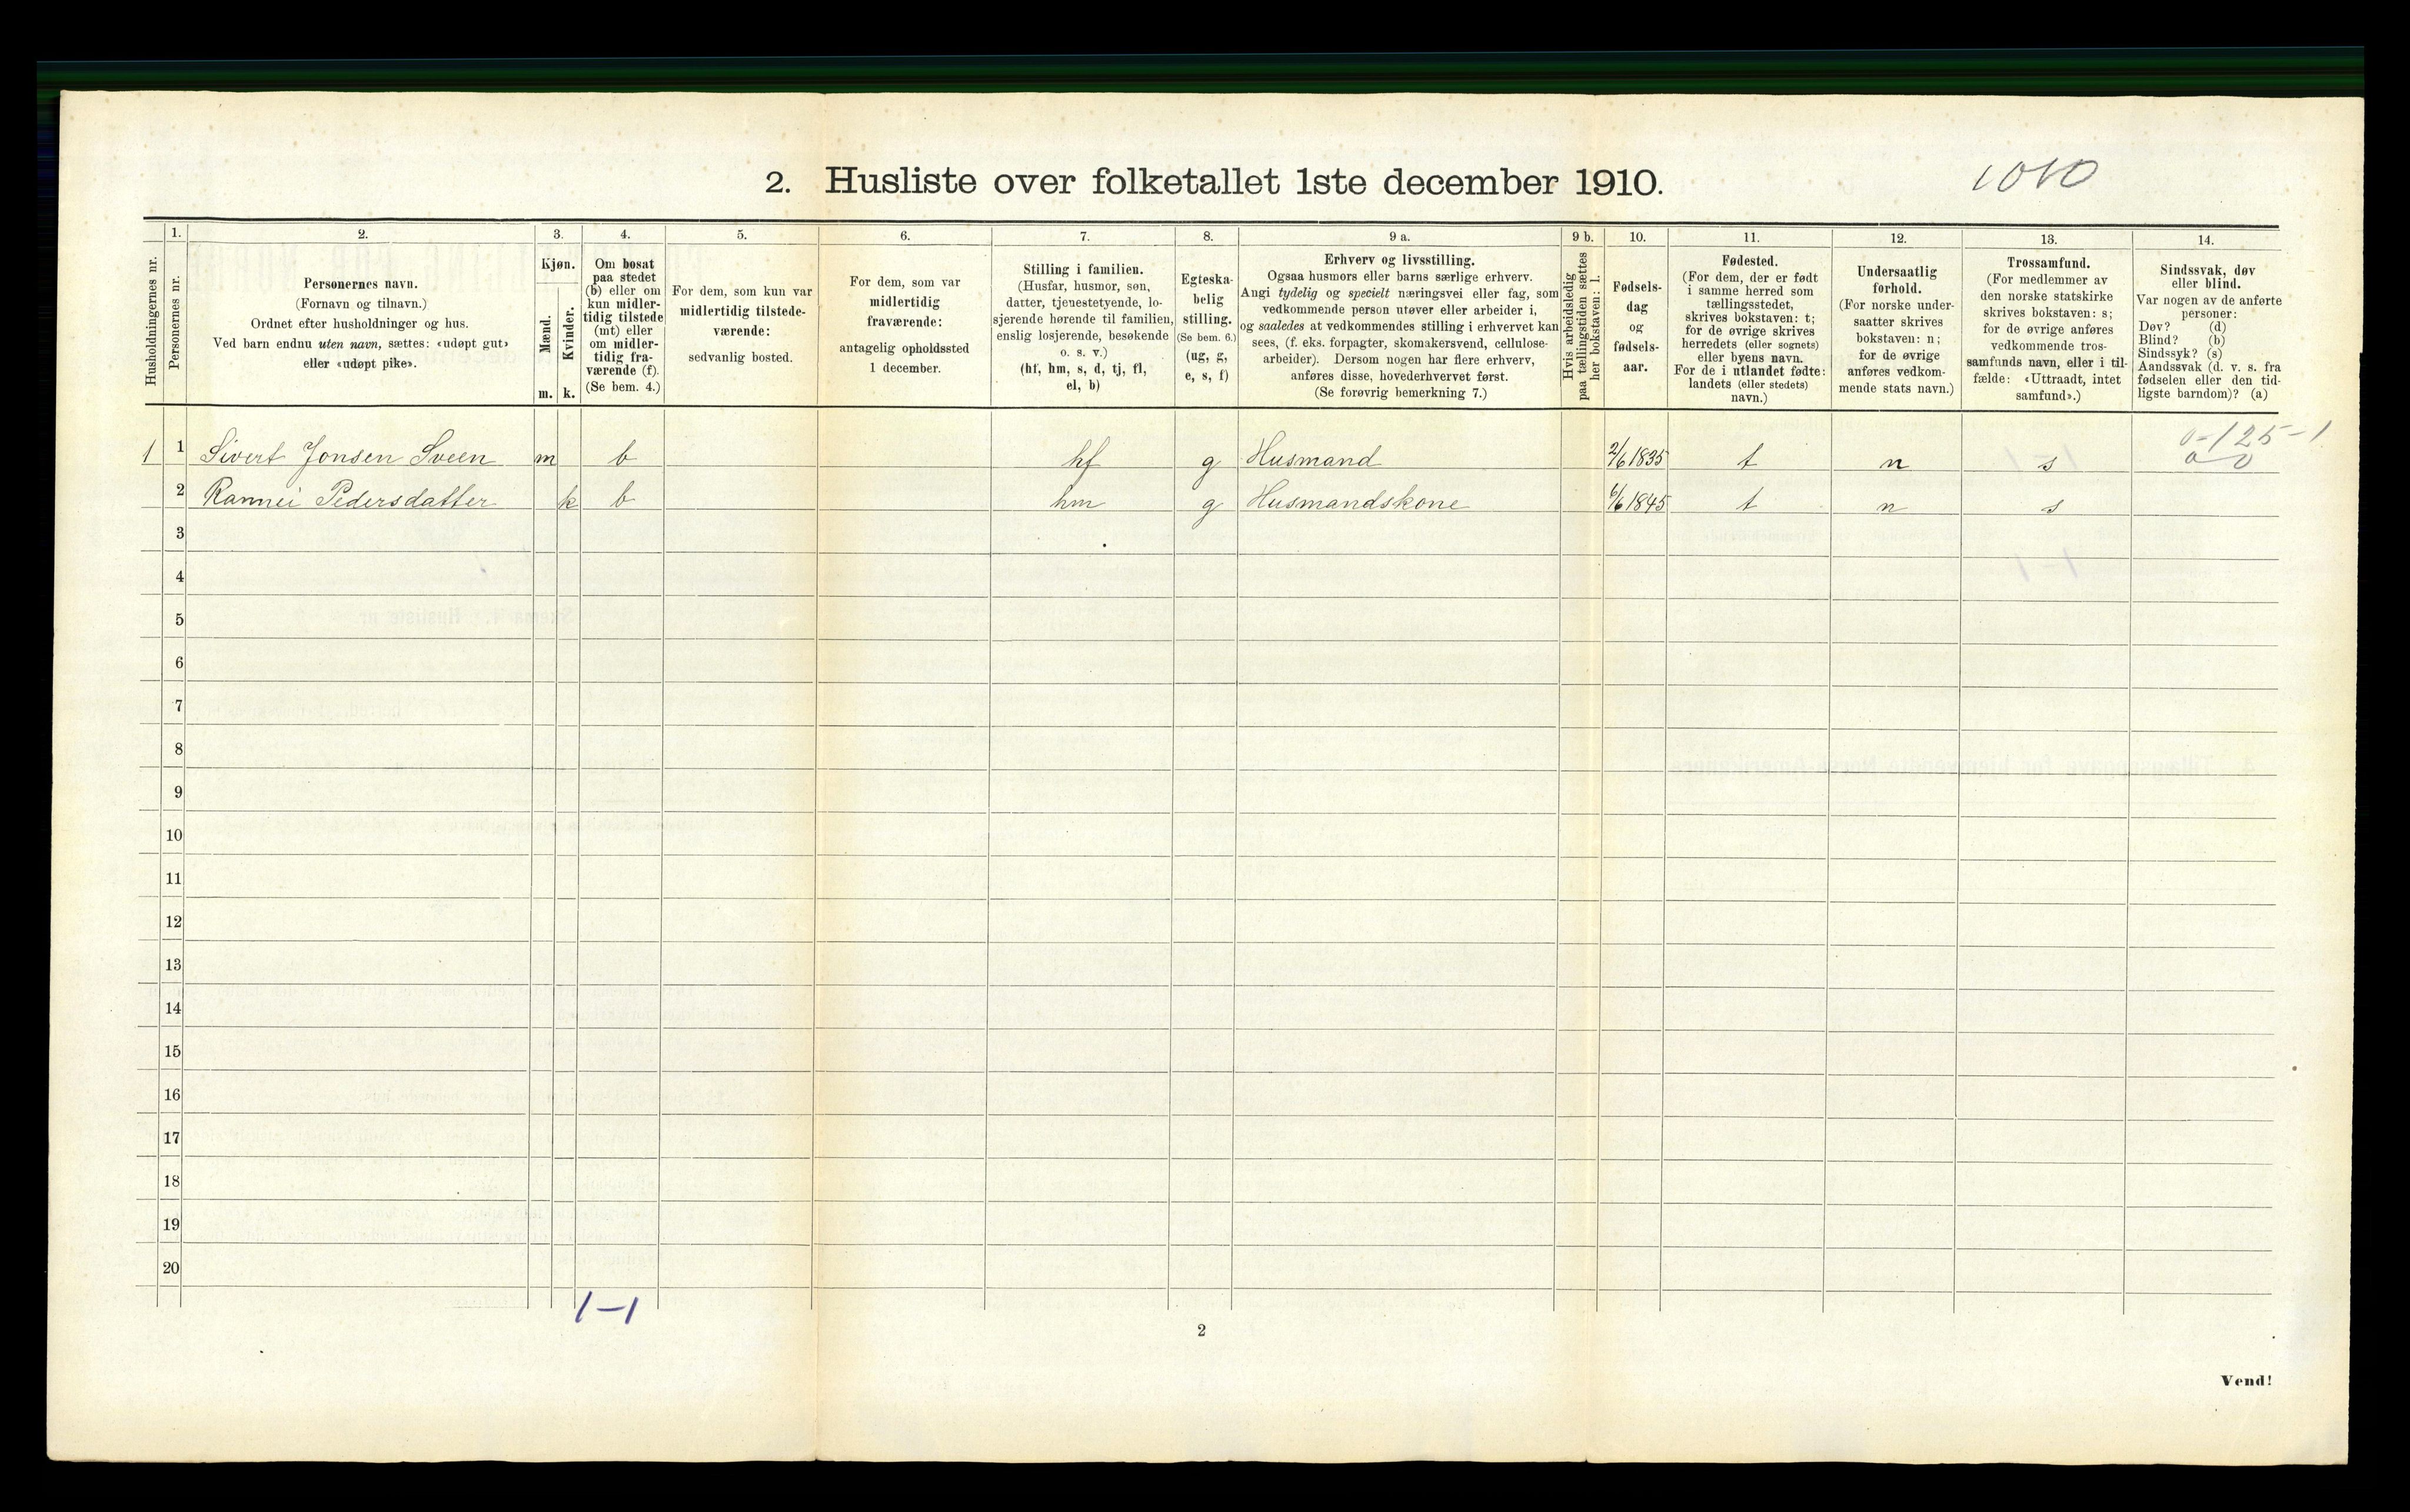 2. Husliste over folketallet 1ste december 1910.
1010
1.
2.
3.
4.
5.
6.
7.
8.
9 a.
9 b.
10.
11.
12.
13.
14.
Husholdningernes nr.
Personernes nr.
Personernes navn.
(Fornavn og tilnavn.)
Ordnet efter husholdninger og hus.
Ved barn endnu uten navn, sættes: «udøpt gut»
eller «udøpt pike».
Kjøn.
Mænd.
Kvinder.
m.
k.
Om bosat
paa stedet
(b) eller om
kun midler-
tidig tilstede
(mt) eller
om midler-
tidig fra-
værende (f).
(Se bem. 4.)
For dem, som kun var
midlertidig tilstede-
værende:
sedvanlig bosted.
For dem, som var
midlertidig
fraværende:
antagelig opholdssted
1 december.
Stilling i familien.
(Husfar, husmor, søn,
datter, tjenestetyende, lo-
sjerende hørende til familien,
enslig losjerende, besøkende
o. s. v.)
(hf, hm, s, d, tj, fl,
el, b)
Egteska-
belig
stilling.
(Se bem. 6.)
(ug, g,
e, s, f)
Erhverv og livsstilling.
Ogsaa husmors eller barns særlige erhverv.
Angi tydelig og specielt næringsvei eller fag, som
vedkommende person utøver eller arbeider i,
og saaledes at vedkommendes stilling i erhvervet kan
sees, (f. eks. forpagter, skomakersvend, cellulose-
arbeider). Dersom nogen har flere erhverv,
anføres disse, hovederhvervet først.
(Se forøvrig bemerkning 7.)
Hvis arbeidsledig
paa tællingstiden sættes
her bokstaven: l.
Fødsels-
dag
og
fødsels-
aar.
Fødested.
(For dem, der er født
i samme herred som
tællingsstedet,
skrives bokstaven: t;
for de øvrige skrives
herredets (eller sognets)
eller byens navn.
For de i utlandet fødte:
landets (eller stedets)
navn.)
Undersaatlig
forhold.
(For norske under-
saatter skrives
bokstaven: n;
for de øvrige
anføres vedkom-
mende stats navn.)
Trossamfund.
(For medlemmer av
den norske statskirke
skrives bokstaven: s;
for de øvrige anføres
vedkommende tros-
samfunds navn, eller i til-
fælde: «Uttraadt, intet
samfund».)
Sindssvak, døv
eller blind.
Var nogen av de anførte
personer:
Døv? (d)
Blind? (b)
Sindssyk? (s)
Aandssvak (d. v. s. fra
fødselen eller den tid-
ligste barndom)? (a)
0-125-1
0 0
1 1 Sivert Jonsen Sveen m b hf g Husmand 2/6 1835 t n s
2 Rannei Pedersdatter k b hm g Husmandskone 6/6 1845 t n s
3
4
5
6
7
8
9
10
11
12
13
14
15
16
17
18
19
20
1-1
2
Vend!